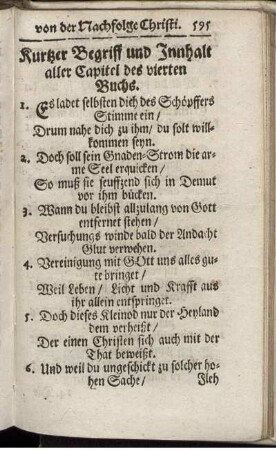 von der Nachfolge Christi. 595
Kurtzer Begriff und Innhalt
aller Capitel des vierten
Buchs.
1. Es ladet selbsten dich des Schöpffers
Stimme ein /
Drum nahe dich zu ihm / du solt will-
kommen seyn.
2. Doch soll sein Gnaden-Strom die ar-
me Seel erquicken /
So muß sie seuffzend sich in Demut
vor ihm bücken.
3. Wann du bleibst allzulang von Gott
entfernet stehen /
Versuchungs winde bald der Andacht
Glut verwehen.
4. Vereinigung mit GOtt uns alles gu-
te bringet /
Weil Leben / Licht und Krafft aus
ihr allein entspringet.
5. Doch dieses Kleinod nur der Heyland
dem verheißt /
Der einen Christen sich auch mit der
That beweißt.
6. Und weil du ungeschickt zu solcher ho-
hen Sache /
Fleh